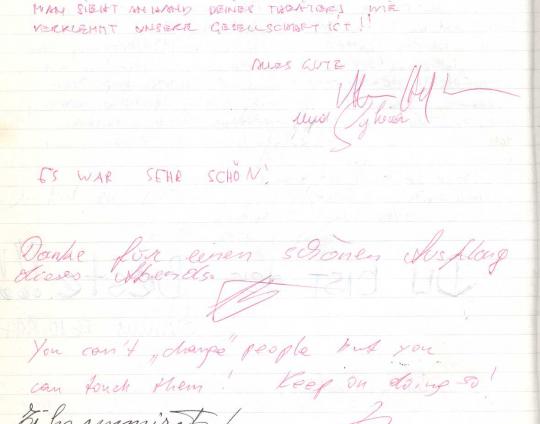 MAN SIEHT ANHAND DEINES THEATERS WIE
VERKLEMMT UNSERE GESELLSCHAFT IST!!
ALLES GUTE
und Sylvia
ES WAR SEHR SCHÖN!
Danke für einen schönen Ausklang
dieses Abends.
You can't „change" people but you
can touch them! Keep on doing so!